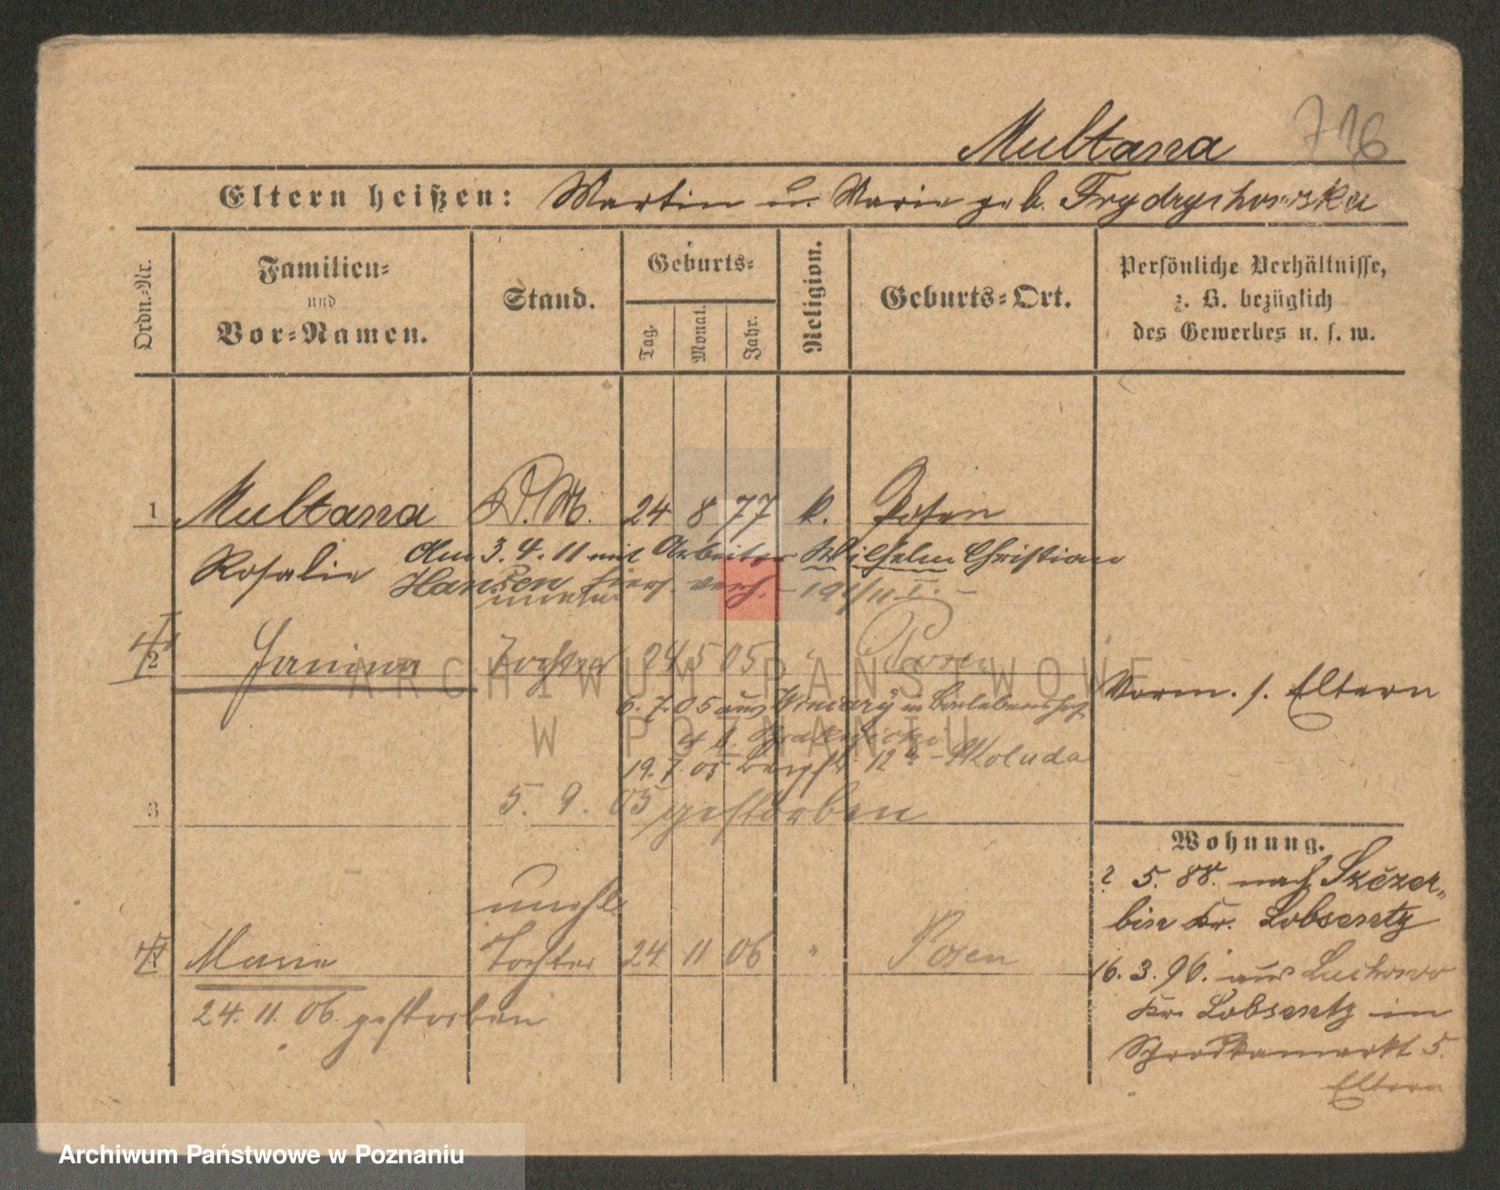 Multana 716
Eltern heißen: Martin u. Marie geb. Frydrychowska
Ordn.-Nr.
Familien-
und
Vor-Namen.
Stand.
Geburts-
Tag.
Monat.
Jahr.
Religion.
Geburts-Ort.
Persönliche Verhältnisse,
z. B. bezüglich
des Gewerbes u. s. w.
1 Multana D.M. 24 8 77 k. Posen
Rosalie Am 3.4.11 mit Arbeiter Wilhelm Christian
Hansen hiers. verh. - 191/11 I. -
unehel.
2 Janina Tochter 24 5 05 " Posen
Vorm. s. Eltern
6.7.05 aus
19.7.05 12 - Skoluda
3 5.9.05 gestorben
Wohnung.
? 5. 88. nach Szczer-
bin Kr. Lobsenetz
unehl.
4 Marie Tochter 24 11 06 " Posen
24.11.06 gestorben
16.3.96. aus Luchowo
Kr. Lobsenetz in
Schrodkamarkt 5.
Eltern
ARCHIWUM PAŃSTWOWE
W POZNANIU
Archiwum Państwowe w Poznaniu